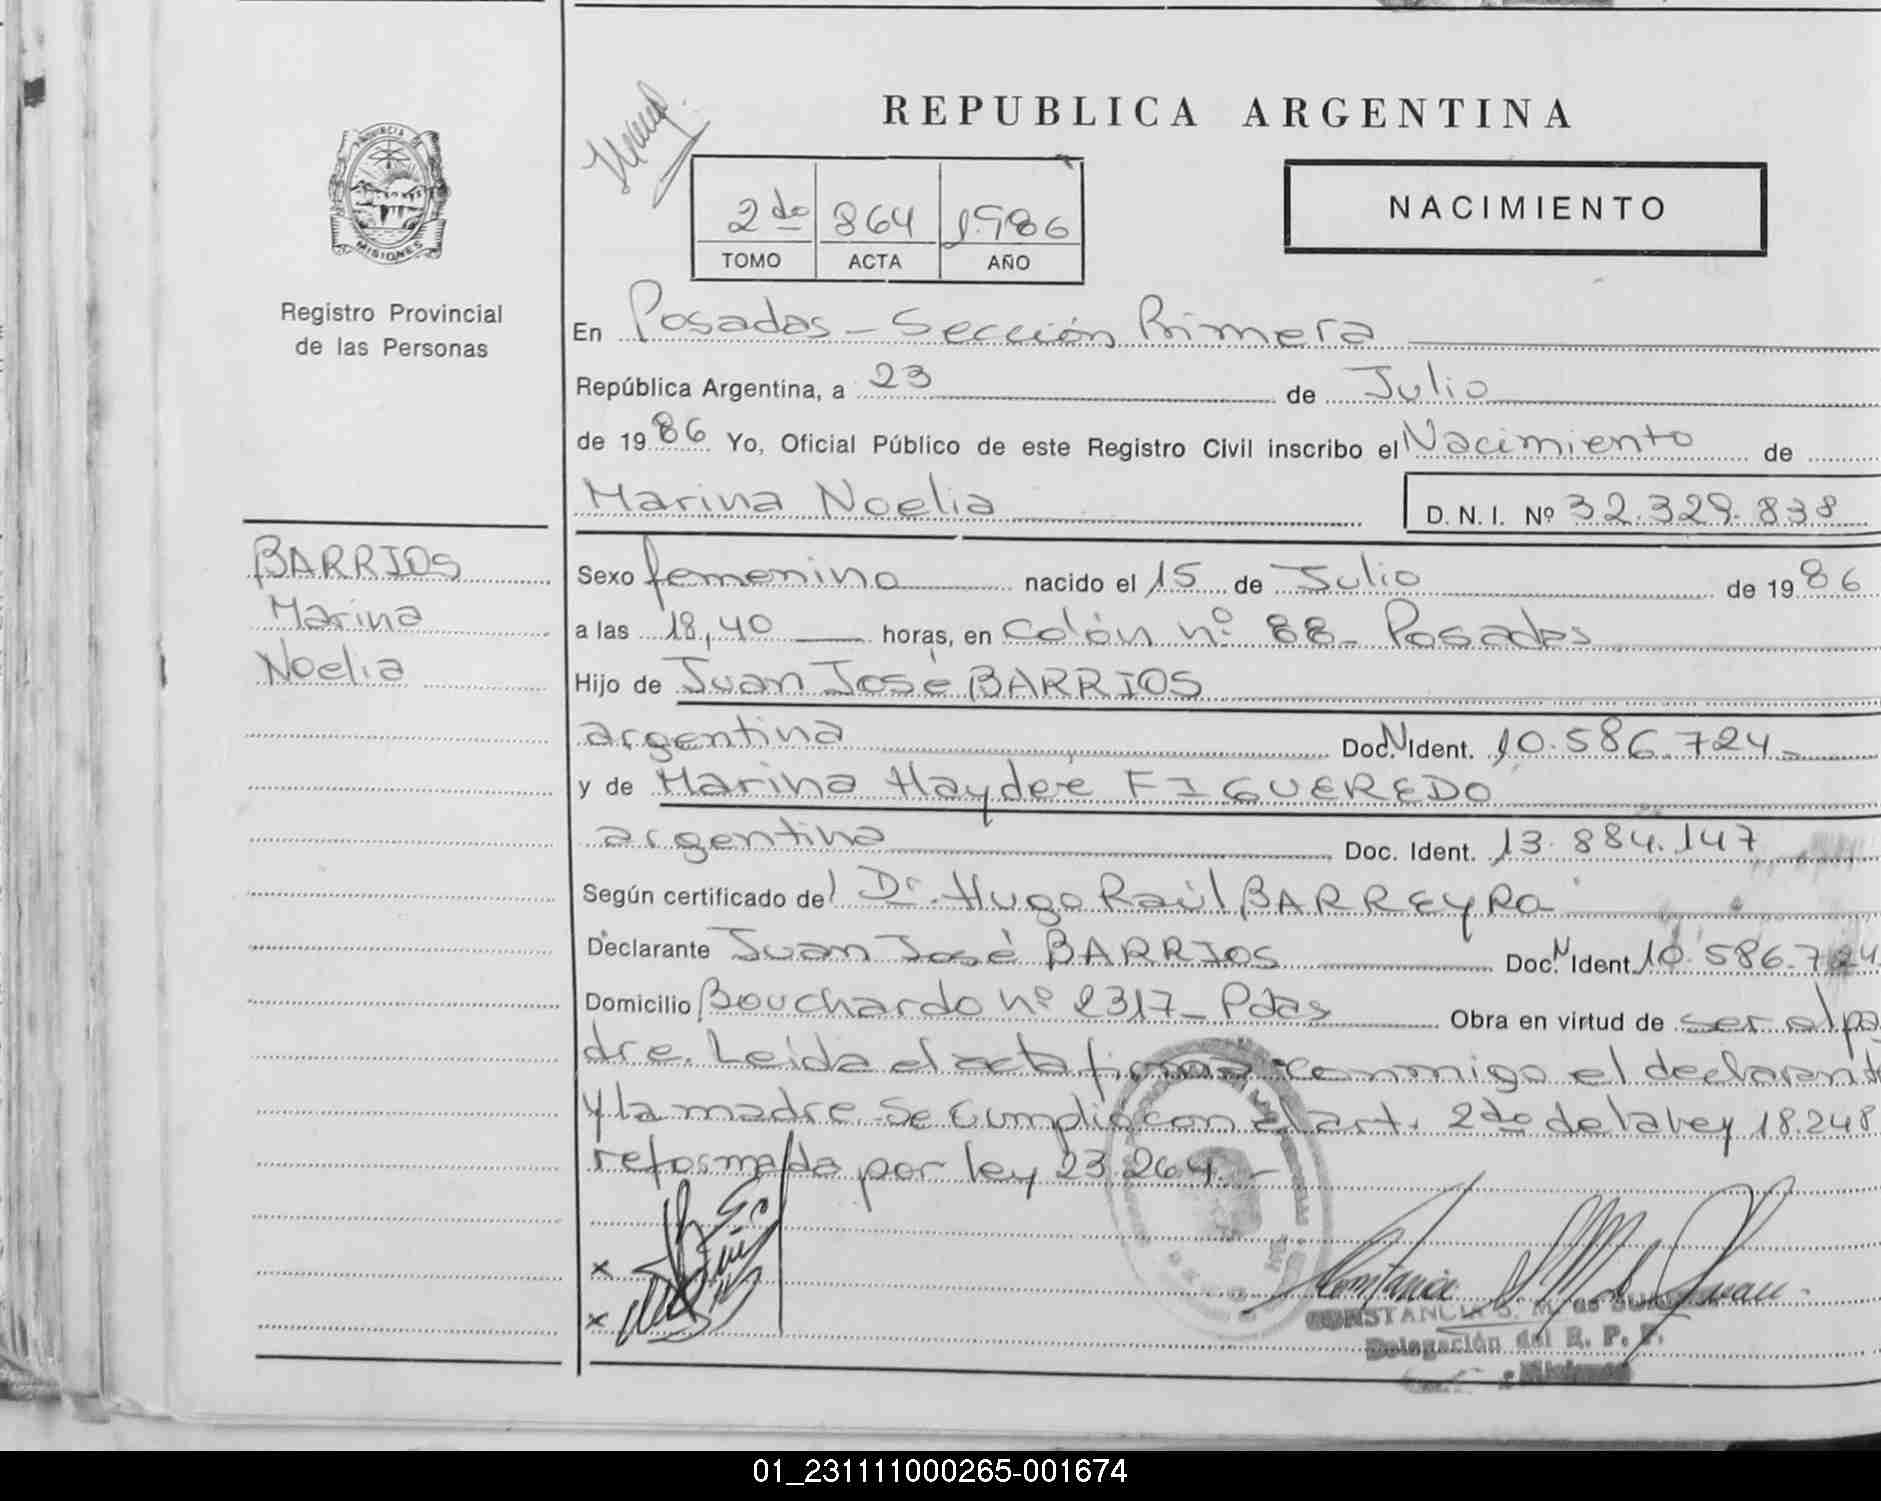 REPUBLICA ARGENTINA
PROVINCIA DE
MISIONES
Registro Provincial
de las Personas
2do 864 1986
TOMO ACTA AÑO
NACIMIENTO
En Posadas - Sección Primera
República Argentina, a 23 de Julio
de 1986 Yo, Oficial Público de este Registro Civil inscribo el Nacimiento de
Marina Noelia D. N. I. Nº 32.329.838
BARRIOS
Marina
Noelia
Sexo femenino nacido el 15 de Julio de 1986
a las 18,40 horas, en Colón nº 88 - Posadas
Hijo de Juan José BARRIOS
argentina Doc. N. Ident. 10.586.724-
y de Marina Haydee FIGUEREDO
argentina Doc. Ident. 13.884.147
Según certificado del Dr. Hugo Raúl BARREYRO
Declarante Juan José BARRIOS Doc. N Ident. 10.586.724
Domicilio Bouchardo nº 2317 - Pdas Obra en virtud de ser el pa
dre. Leida el acta firma conmigo el declarante
y la madre. Se cumplió con el art. 2do de la Ley 18.248
reformada por ley 23.264.-
x
x
CONSTANCIA S. M. de
Delegación del R. P. P.
Misiones
01_231111000265-001674